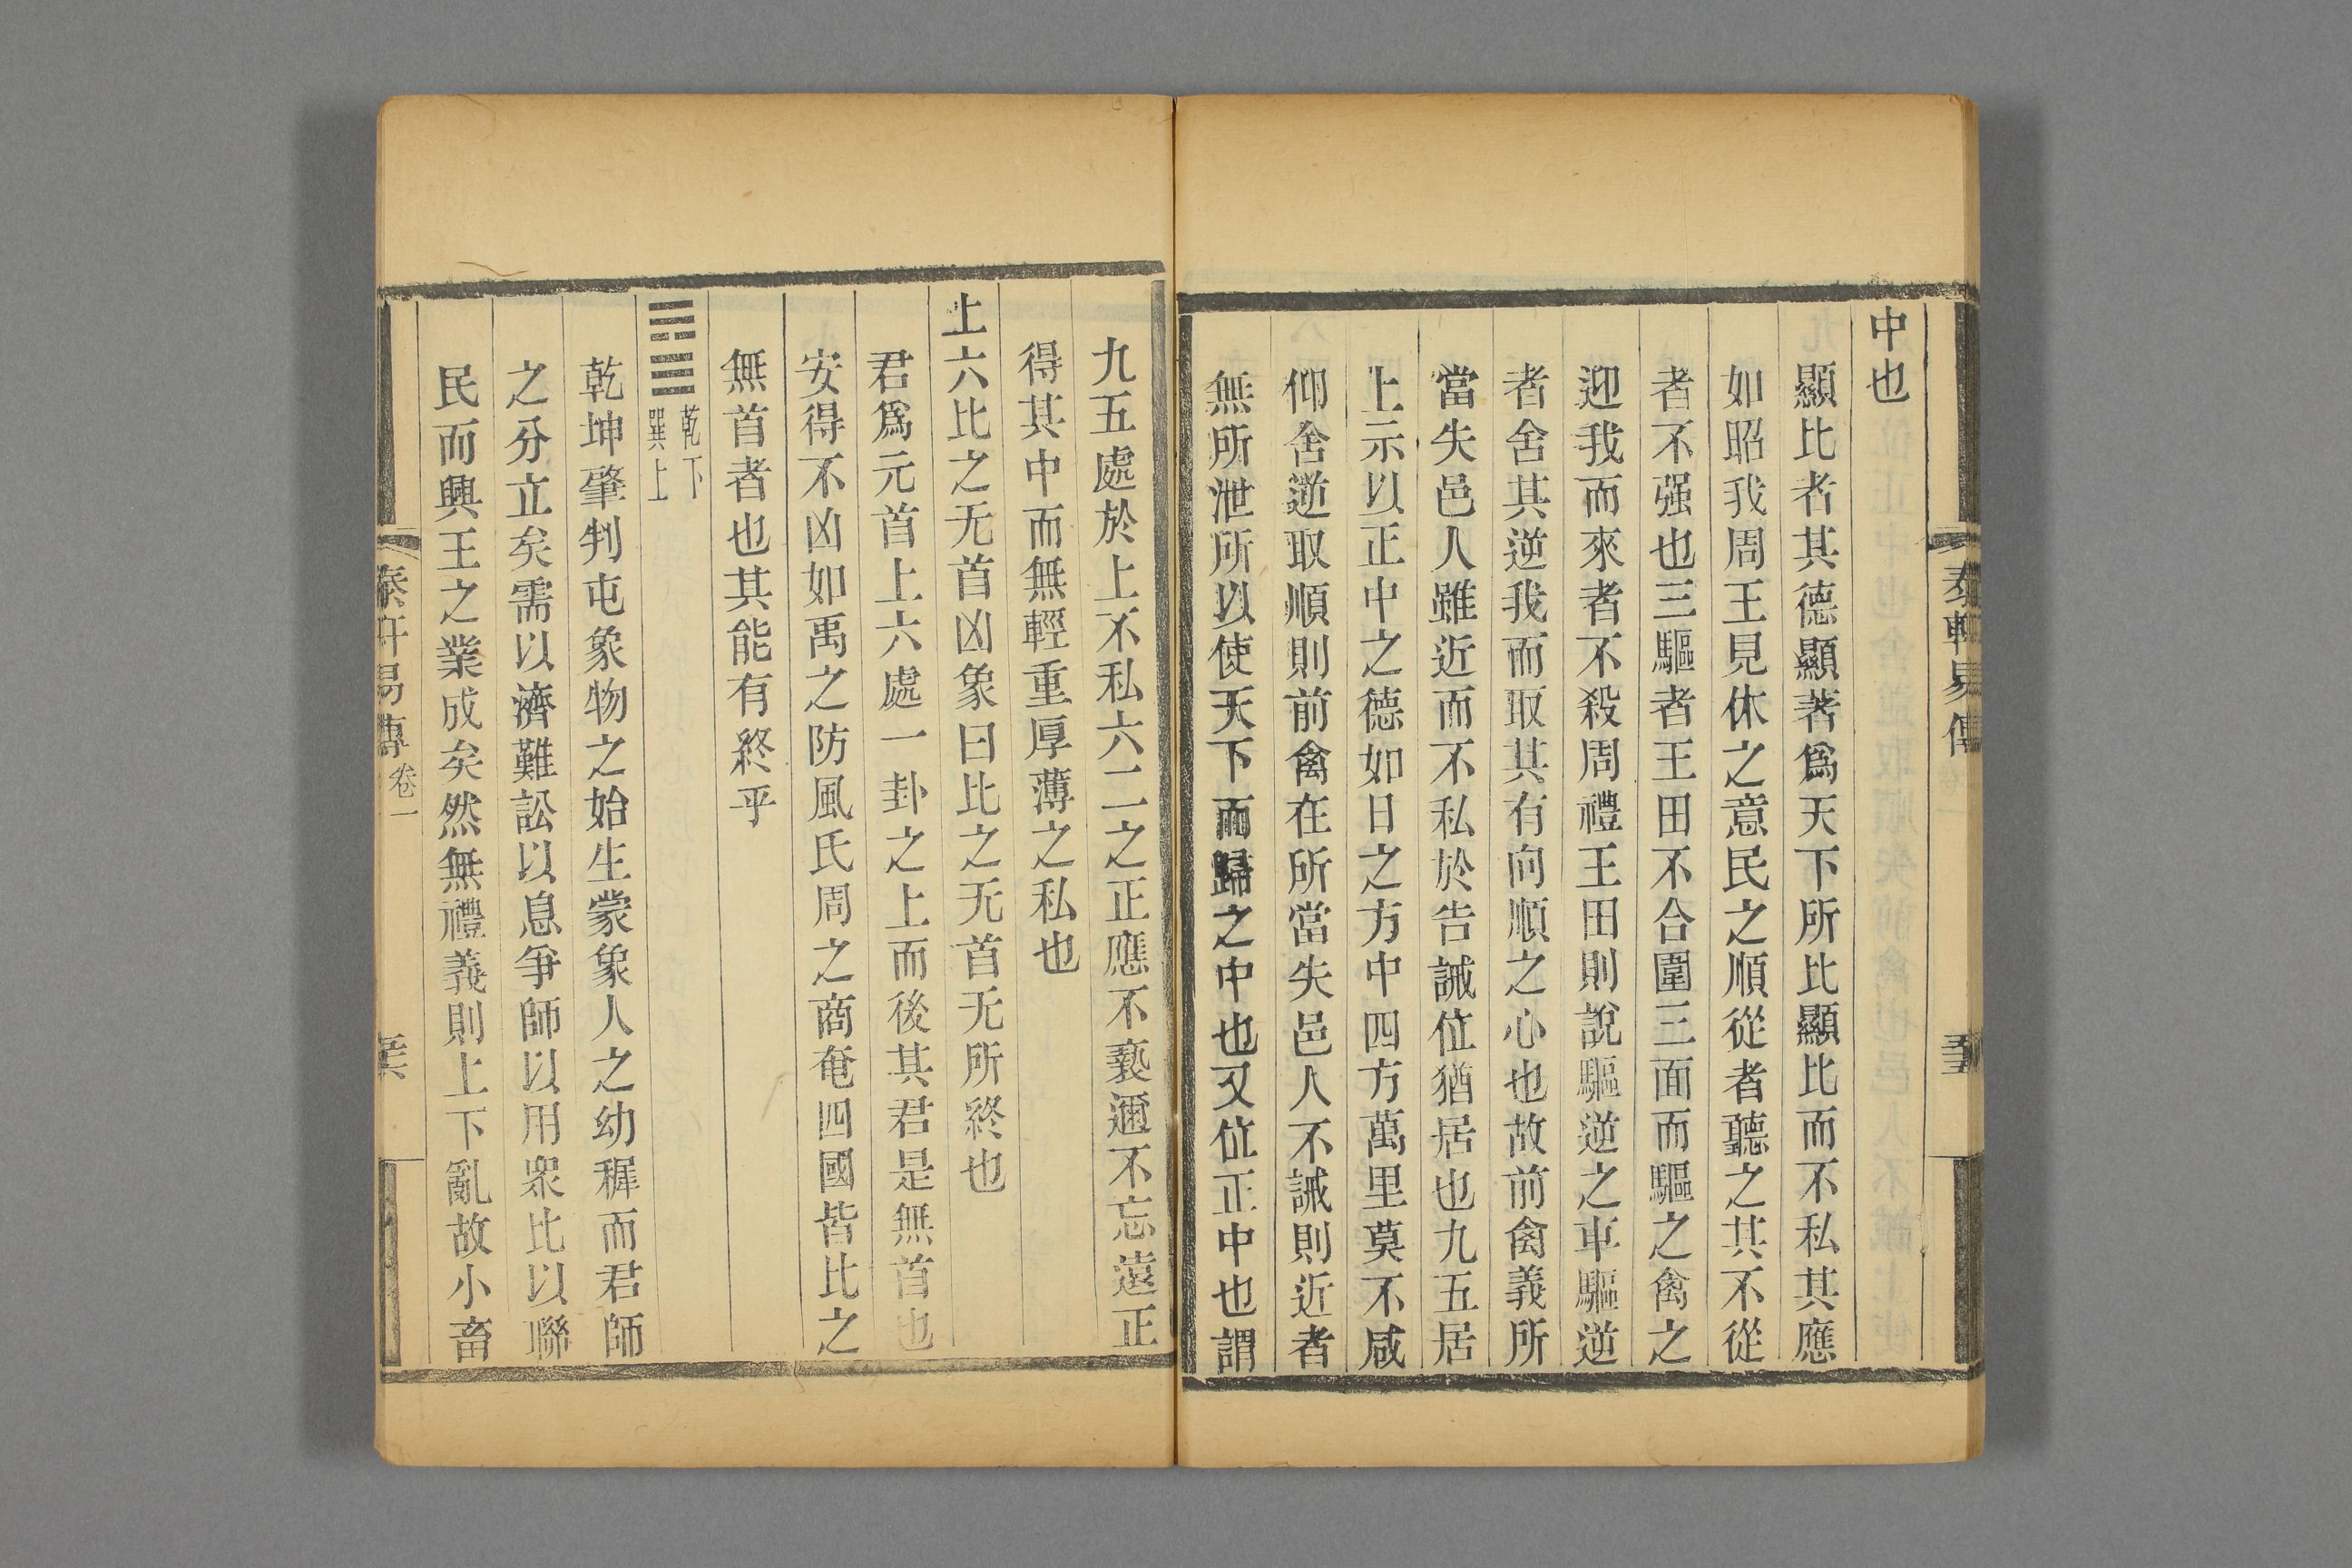 中也
顯比者其德顯著爲天下所比顯比而不私其應
如昭我周王見休之意民之順從者聽之其不從
者不强也三驅者王田不合圍三面而驅之禽之
迎我而來者不殺周禮王田則說驅逆之車驅逆
者舍其逆我而取其有向順之心也故前禽義所
當失邑人雖近而不私於告誡位猶居也九五居
上示以正中之德如日之方中四方萬里莫不咸
仰舍逆取順則前禽在所當失邑人不誡則近者
無所泄所以使天下而歸之中也又位正中也謂
九五處於上不私六二之正應不褻邇不忘遠正
得其中而無輕重厚薄之私也
上六比之无首凶象曰比之无首无所終也
君爲元首上六處一卦之上而後其君是無首也
安得不凶如禹之防風氏周之商奄四國皆比之
無首者也其能有終乎
乾下
巽上
乾坤肇判屯象物之始生蒙象人之幼穉而君師
之分立矣需以濟難訟以息爭師以用衆比以聯
民而興王之業成矣然無禮義則上下亂故小畜
易傳
卷一